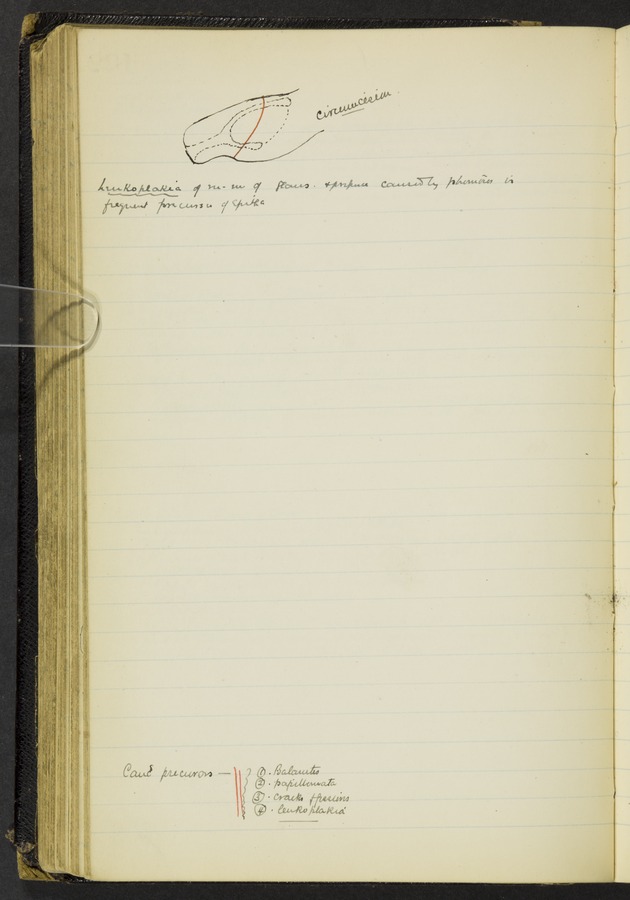 circumcision
Leukoplakia of m-m of glans + prepuce caused by phimosis is
frequent precursor of Epith
Canc precursors —
① . Balanitis
② . papillomata
③ . cracks + fissures
④ . leukoplakia